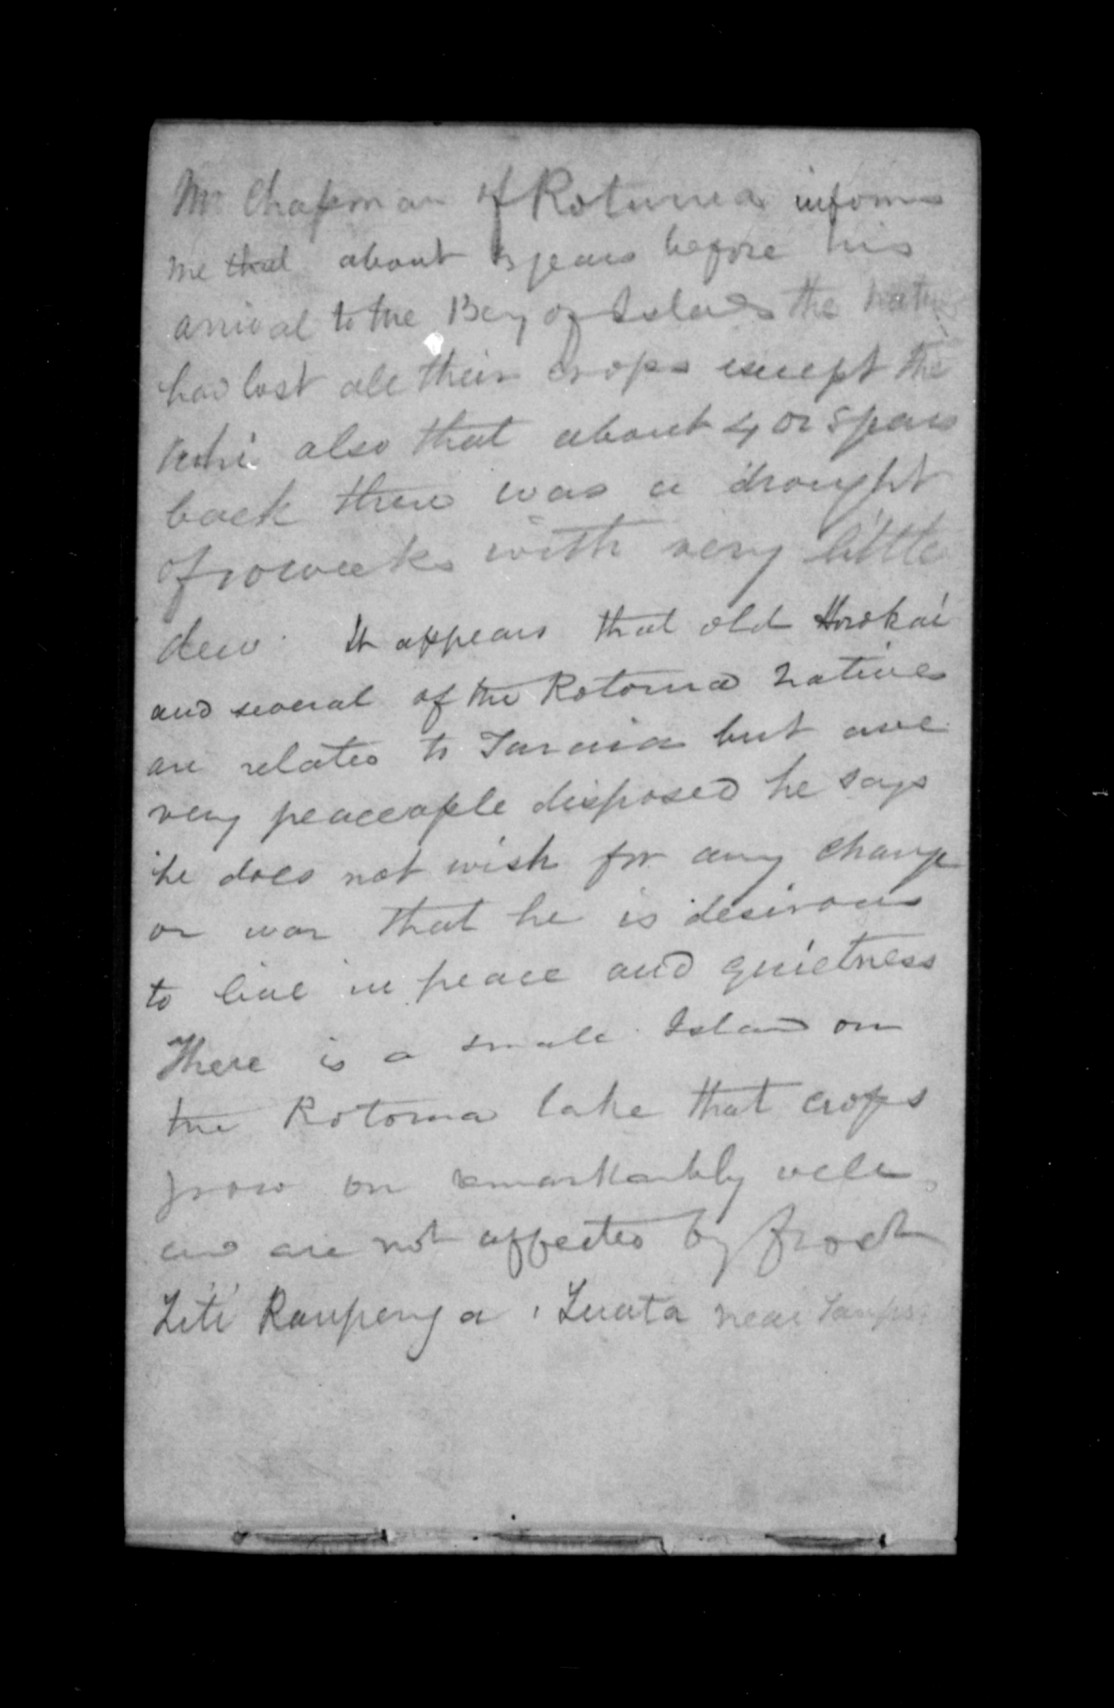 Mr Chapman of Rotuma informs
me that about 3 years before his
arrival to the Bay of Islands the Natives
had lost all their crops except the
also that about 4 or 5 years
back there was a drought
of 10 weeks with very little
dew. It appears that old Horokai
and several of the Rotorua Natives
are related to Taraia but are
very peaceaple disposed he says
he does not wish for any change
or war that he is desirous
to live in peace and quietness
There is a small Island on
the Rotorua lake that crops
grow on remarkably well
and are not affected by frost
Titi Raupenga, Tuata near Taupo